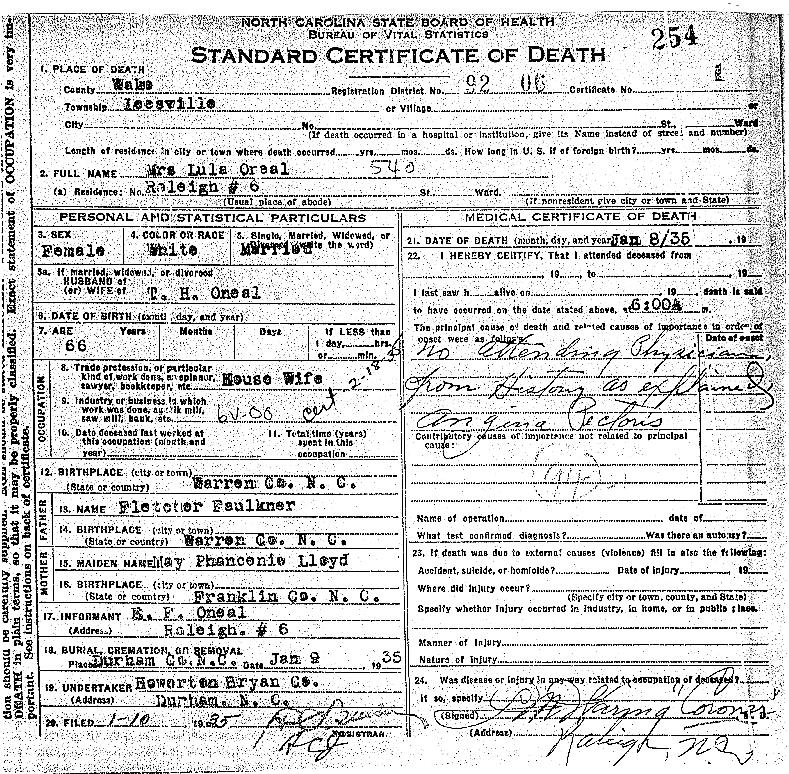 NORTH CAROLINA STATE BOARD OF HEALTH
BUREAU OF VITAL STATISTICS
STANDARD CERTIFICATE OF DEATH
254
1. PLACE OF DEATH
County Wake Registration District No. 92 06 Certificate No.
Township Leesville or Village or
City No. St., Ward
(If death occurred in a hospital or institution, give its Name instead of street and number)
Length of residence in city or town where death occurred yrs. mos. ds. How long in U. S. if of foreign birth? yrs. mos. ds.
2. FULL NAME Mrs Lula Oneal 540
(a) Residence: Raleigh # 6 St. Ward.
(Usual place of abode) (If nonresident give city or town and State)
PERSONAL AND STATISTICAL PARTICULARS
3. SEX 4. COLOR OR RACE 5. Single, Married, Widowed, or
Divorced (write the word)
Female White Married
5a. If married, widowed, or divorced
HUSBAND of
(or) WIFE of T. H. Oneal
6. DATE OF BIRTH (month, day, and year)
7. AGE Years Months Days If LESS than
1 day, hrs.
66 or min.
OCCUPATION
8. Trade, profession, or particular
kind of work done, as spinner, House Wife
sawyer, bookkeeper, etc.
9. Industry or business in which
work was done, as silk mill,
saw mill, bank, etc. 6V-00 cert 2-18-35
10. Date deceased last worked at 11. Total time (years)
this occupation (month and spent in this
year) occupation
12. BIRTHPLACE (city or town)
(State or country) Warren Co. N. C.
FATHER
13. NAME Fletcher Faulkner
14. BIRTHPLACE (city or town)
(State or country) Warren Co. N. C.
MOTHER
15. MAIDEN NAME May Phancenie Lloyd
16. BIRTHPLACE (city or town)
(State or country) Franklin Co. N. C.
17. INFORMANT E. F. Oneal
(Address) Raleigh. # 6
18. BURIAL, CREMATION, OR REMOVAL
Place Durham Co. N.C. Date Jan 9 1935
19. UNDERTAKER Howerton Bryan Co.
(Address) Durham. N. C.
20. FILED 1-10 1935
REGISTRAR.
MEDICAL CERTIFICATE OF DEATH
21. DATE OF DEATH (month, day, and year) Jan 8/35 , 19
22. I HEREBY CERTIFY, That I attended deceased from
, 19 , to , 19
I last saw h alive on , 19 , death is said
to have occurred on the date stated above, at 6:00A m.
The principal cause of death and related causes of importance in order of
onset were as follows: Date of onset
No attending Physician,
from History as explained
Angina Pectoris
Contributory causes of importance not related to principal
cause:
Name of operation date of
What test confirmed diagnosis? Was there an autopsy?
23. If death was due to external causes (violence) fill in also the following:
Accident, suicide, or homicide? Date of injury 19
Where did injury occur?
(Specify city or town, county, and State)
Specify whether injury occurred in industry, in home, or in public place.
Manner of Injury
Nature of Injury
24. Was disease or injury in any way related to occupation of deceased?
If so, specify
(Signed) Waring Coroner
(Address) Raleigh, NC
tion should be carefully supplied.
DEATH in plain terms, so that it may be properly classified. Exact statement of OCCUPATION is very im-
portant. See instructions on back of certificate.